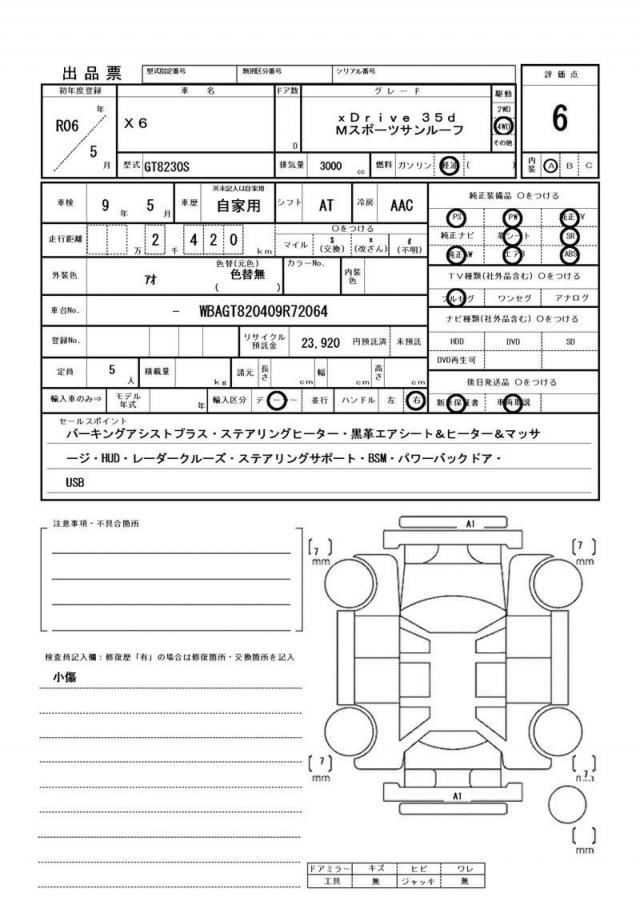 出品票 型式指定番号 類別区分番号 シリアル番号 評価点
初年度登録 車名 ドア数 グレード 駆動 6
R06 年 5 月 X6 D xDrive 35d 2WD
Mスポーツサンルーフ 4WD
その他
型式 GT8230S 排気量 3000 cc 燃料 ガソリン 軽油 ( ) 内装 A B C
車検 9 年 5 月 車歴 ※未記入は自家用 自家用 シフト AT 冷房 AAC 純正装備品 ○をつける
PS PW 純正TV
走行距離 万 2 千 4 2 0 km ○をつける 純正ナビ 革シート SR
マイル $ (交換) x (改ざん) # (不明) 純正AW エアB ABS
外装色 アオ 色替(元色) 色替無 ( ) カラーNo. 内装色 TV種類(社外品含む) ○をつける
フルセグ ワンセグ アナログ
車台No. - WBAGT820409R72064 ナビ種類(社外品含む) ○をつける
登録No. リサイクル預託金 23,920 円預託済 未預託 HDD DVD SD
DVD再生可
定員 5 人 積載量 kg 諸元 長さ cm 幅 cm 高さ cm 後日発送品 ○をつける
輸入車のみ⇒ モデル年式 年 輸入区分 ディーラー 並行 ハンドル 左 右 新車保証書 車両取説
セールスポイント
パーキングアシストプラス・ステアリングヒーター・黒革エアシート&ヒーター&マッサ
ージ・HUD・レーダークルーズ・ステアリングサポート・BSM・パワーバックドア・
USB
注意事項・不具合箇所
A1
[7] mm [7] mm
検査員記入欄:修復歴「有」の場合は修復箇所・交換箇所を記入
小傷
[7] mm [7] mm
A1
[ ] mm
ドアミラー キズ ヒビ ワレ
工具 無 ジャッキ 無